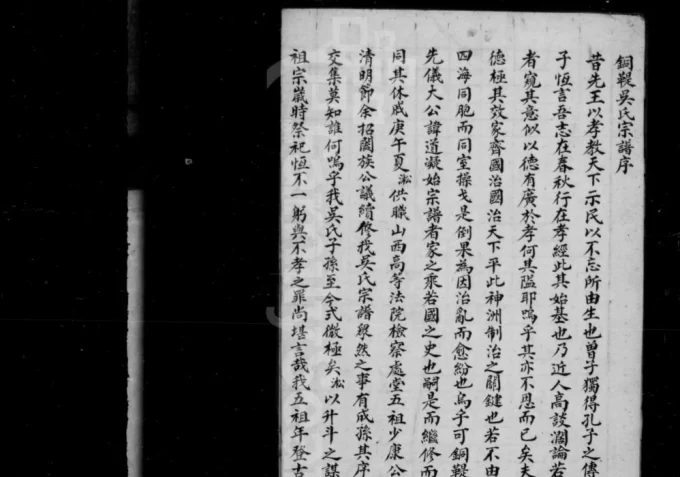 銅鞮吳氏宗譜序
昔先王以孝教天下示民以不忘所由生也曾子獨得孔子之傳
子恆言吾志在春秋行在孝經此其始基也乃近人高談濶論若
者窺其意似以德有廣於孝何其隘耶嗚乎其亦不思而已矣夫
德極其效家齊國治國治天下平此神洲制治之關鍵也若不由
四海同胞而同室操戈是倒果為因治亂而愈紛也烏乎可銅鞮
先儀大公諱道凝始宗譜者家之乘若國之史也嗣是而繼修而
同其休戚庚午夏淞供職山西高等法院檢察處堂五祖少康公
清明節余招闔族公議續修我吳氏宗譜眾然之事有成孫其序
交集莫知誰何嗚乎我吳氏子孫至今式微極矣淞以升斗之謀
祖宗歲時祭祀恆不一躬與不孝之罪尚堪言哉我五祖年登古